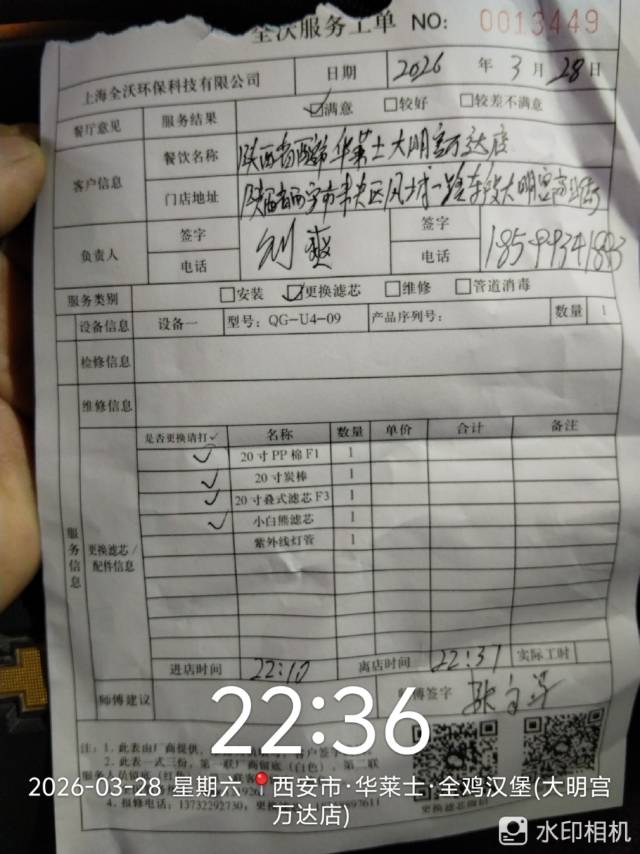 全沃服务工单 NO: 0013449
上海全沃环保科技有限公司 日期 2026 年 3 月 28 日
餐厅意见 服务结果 ☑满意 □较好 □较差不满意
客户信息 餐饮名称 陕西省西安市华莱士大明宫万达店
门店地址 陕西省西安市未央区凤城一路 大明宫
负责人 签字 刘爽 签字
电话 电话
服务类别 □安装 ☑更换滤芯 □维修 □管道消毒
设备信息 设备一 型号: QG-U4-09 产品序列号: 数量 1
检修信息
维修信息
服务信息 更换滤芯/配件信息
是否更换请打✓ 名称 数量 单价 合计 备注
✓ 20寸PP棉F1 1
✓ 20寸炭棒 1
✓ 20寸叠式滤芯F3 1
✓ 小白熊滤芯 1
紫外线灯管 1
进店时间 22:10 离店时间 22:31 实际工时
师傅建议 师傅签字
注: 1. 此表由厂商提供,
2. 此表一式三份, 第一联厂商留底(白色), 第二联
4. 报修电话: 13732292730,
22:36
2026-03-28 星期六 西安市·华莱士·全鸡汉堡(大明宫
万达店)
水印相机